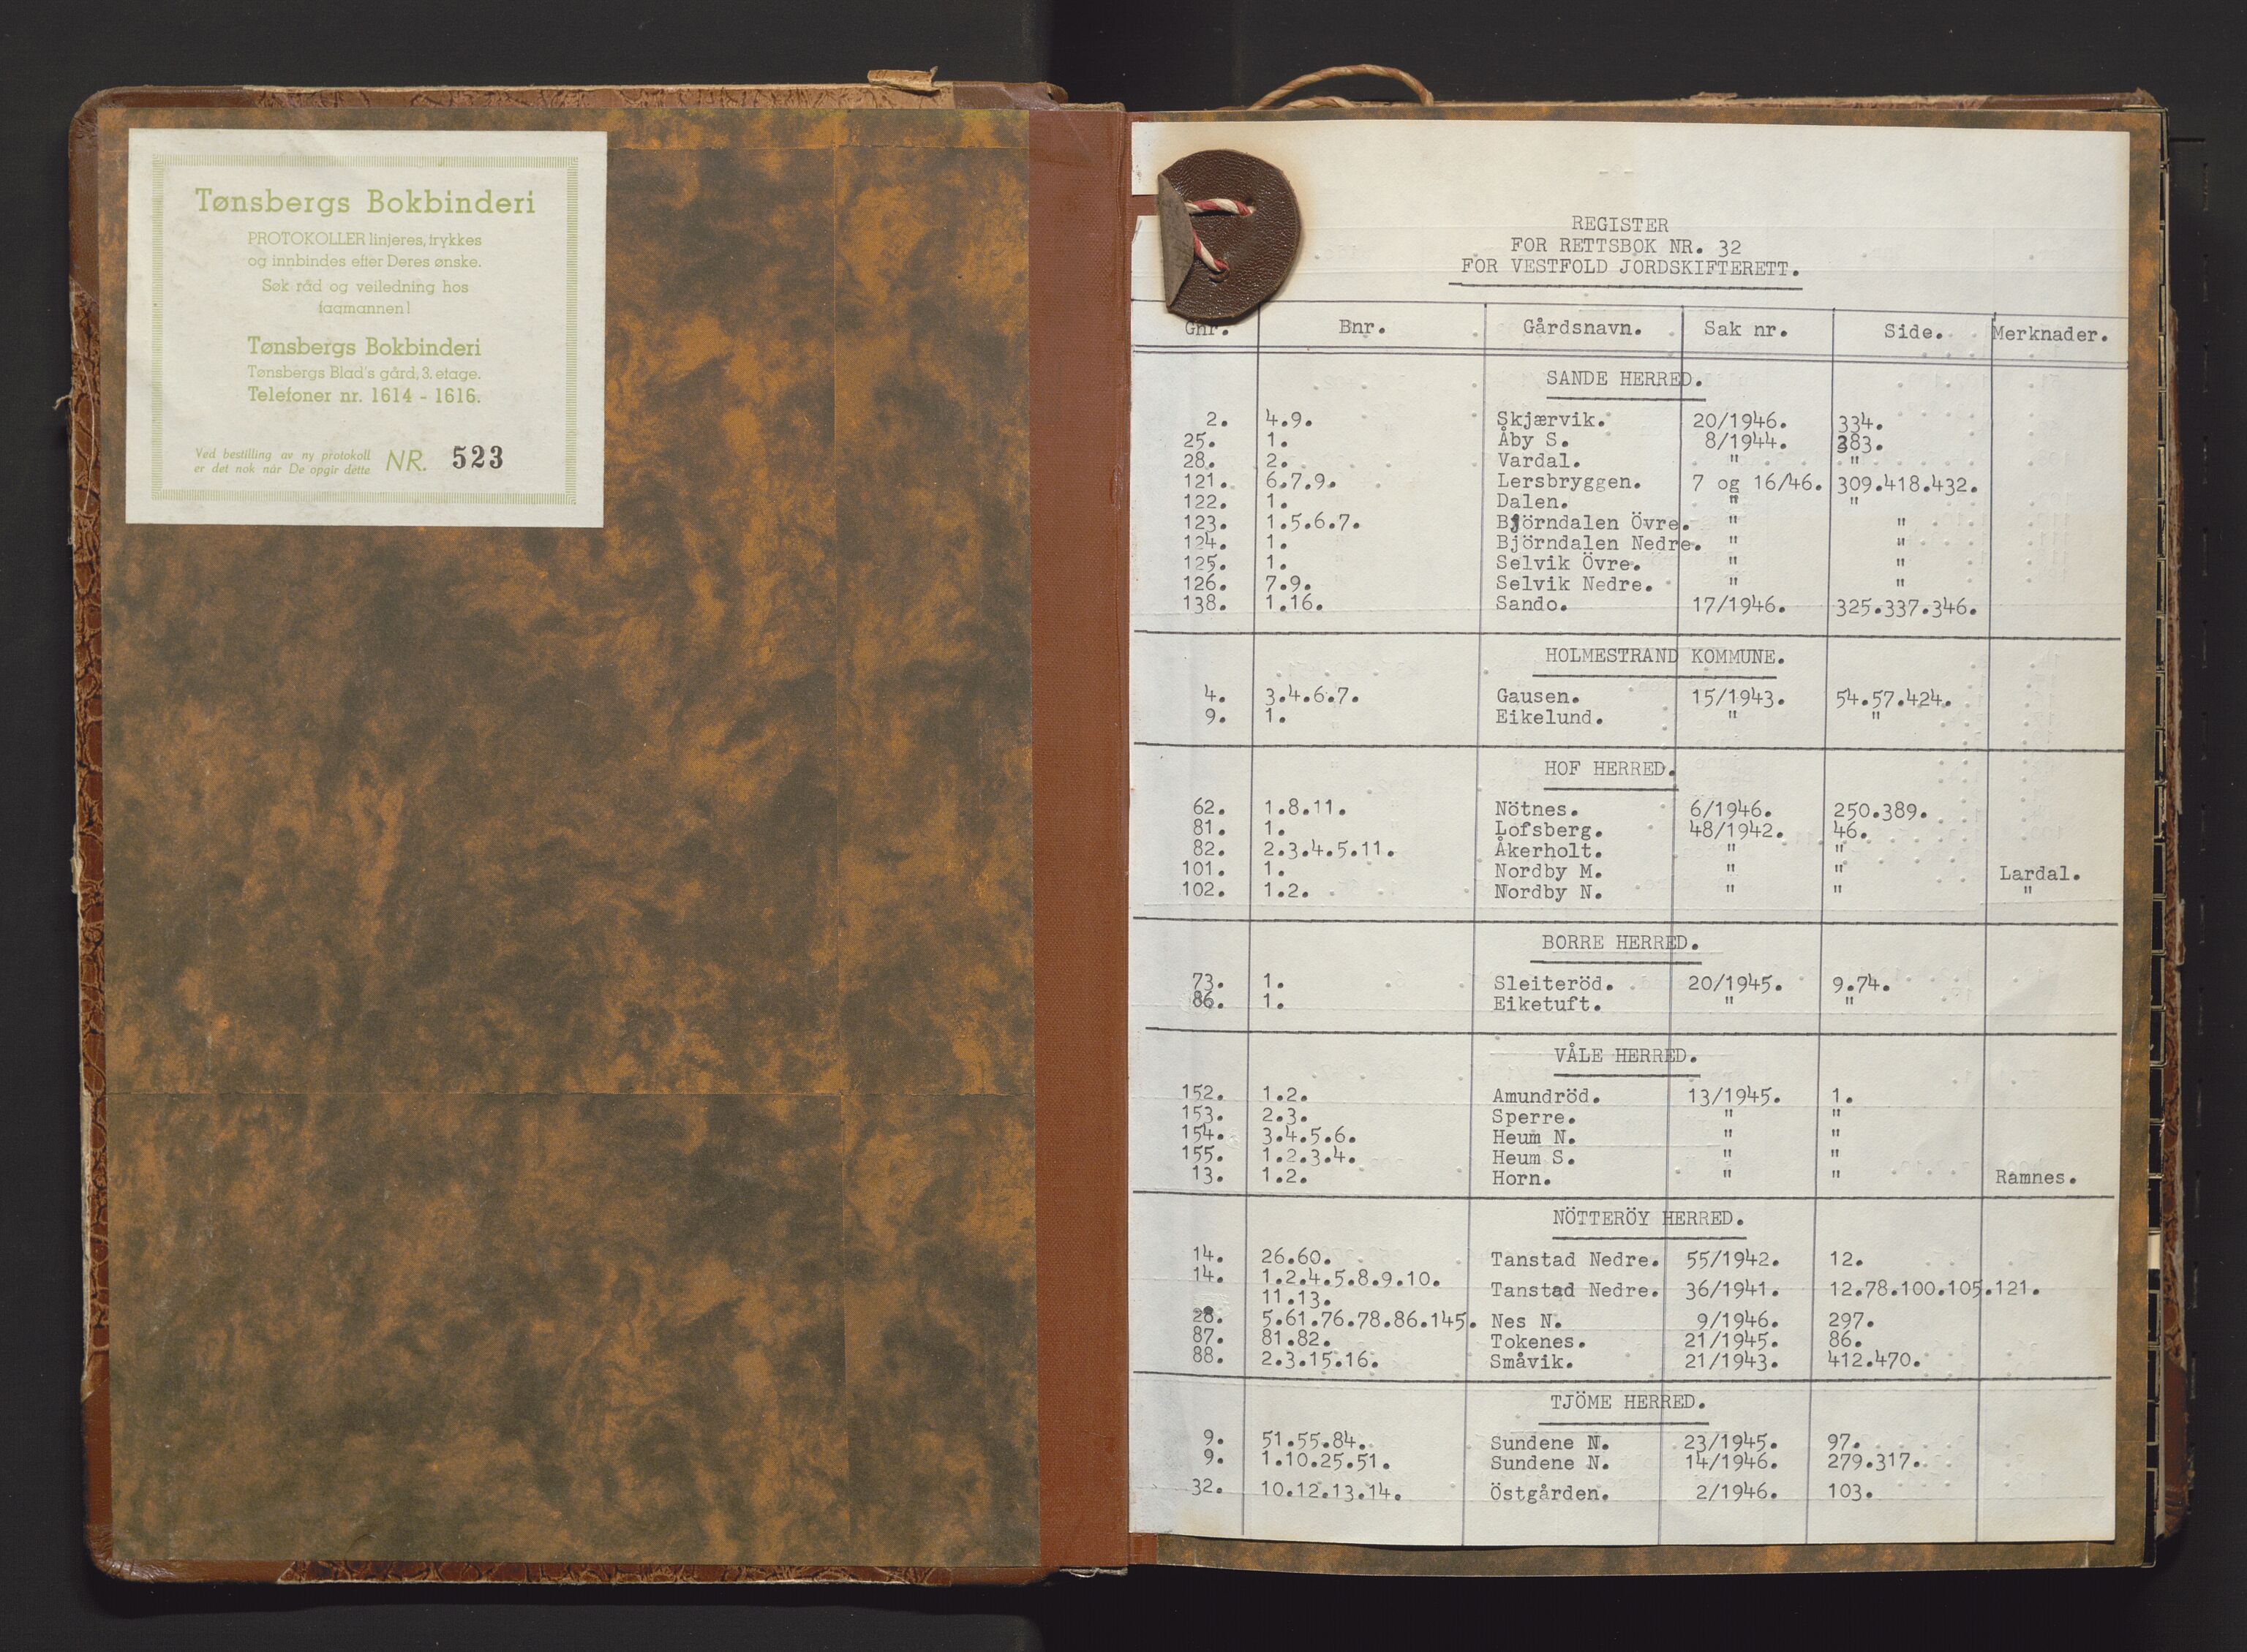 Tønsbergs Bokbinderi
PROTOKOLLER linjeres, trykkes
og innbindes efter Deres ønske.
Søk råd og veiledning hos
fagmannen!
Tønsbergs Bokbinderi
Tønsbergs Blad's gård, 3. etage.
Telefoner nr. 1614 - 1616.
Ved bestilling av ny protokoll
er det nok når De opgir dette NR. 523
REGISTER
FOR RETTSBOK NR. 32
FOR VESTFOLD JORDSKIFTERETT.
Gnr. Bnr. Gårdsnavn. Sak nr. Side. Merknader.
SANDE HERRED.
2. 4.9. Skjærvik. 20/1946. 334.
25. 1. Åby S. 8/1944. 383.
28. 2. Vardal. " "
121. 6.7.9. Lersbryggen. 7 og 16/46. 309.418.432.
122. 1. Dalen. " "
123. 1.5.6.7. Björndalen Övre. " "
124. 1. Björndalen Nedre. " "
125. 1. Selvik Övre. " "
126. 7.9. Selvik Nedre. " "
138. 1.16. Sando. 17/1946. 325.337.346.
HOLMESTRAND KOMMUNE.
4. 3.4.6.7. Gausen. 15/1943. 54.57.424.
9. 1. Eikelund. " "
HOF HERRED.
62. 1.8.11. Nötnes. 6/1946. 250.389.
81. 1. Lofsberg. 48/1942. 46.
82. 2.3.4.5.11. Åkerholt. " "
101. 1. Nordby M. " " Lardal.
102. 1.2. Nordby N. " " "
BORRE HERRED.
73. 1. Sleiteröd. 20/1945. 9.74.
86. 1. Eiketuft. " "
VÅLE HERRED.
152. 1.2. Amundröd. 13/1945. 1.
153. 2.3. Sperre. " "
154. 3.4.5.6. Heum N. " "
155. 1.2.3.4. Heum S. " "
13. 1.2. Horn. " " Ramnes.
NÖTTERÖY HERRED.
14. 26.60. Tanstad Nedre. 55/1942. 12.
14. 1.2.4.5.8.9.10.
11.13. Tanstad Nedre. 36/1941. 12.78.100.105.121.
28. 5.61.76.78.86.145. Nes N. 9/1946. 297.
87. 81.82. Tokenes. 21/1945. 86.
88. 2.3.15.16. Småvik. 21/1943. 412.470.
TJÖME HERRED.
9. 51.55.84. Sundene N. 23/1945. 97.
9. 1.10.25.51. Sundene N. 14/1946. 279.317.
32. 10.12.13.14. Östgården. 2/1946. 103.